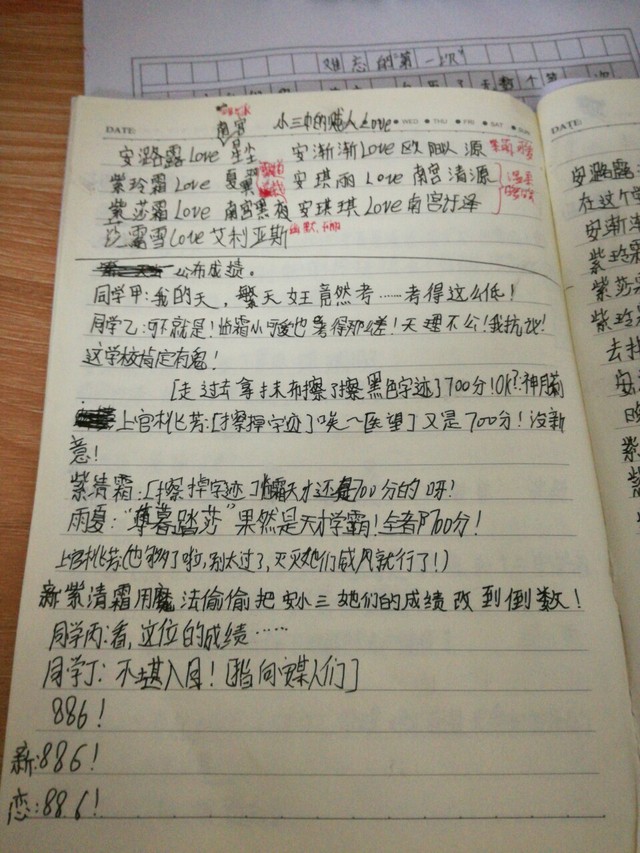 难忘的第一次
DATE:
WED THU FRI SAT SUN
南宫 小三中的贱人Love
安潞露Love 星尘 安渐渐Love欧阳源
紫玲霜Love 夏 安琪雨Love南宫清源
紫莎霜Love 南宫黑夜 安琪琪Love南宫
露雪Love艾利亚斯 幽默
公布成绩。
同学甲:我的天，繁天女王竟然考……考得这么低!
同学乙:可不就是!霜小可爱也考得那么差!天理不公!我抗议!
这学校肯定有鬼!
[走过去拿抹布擦了擦黑色字迹]700分!OK?神月
上官桃芳:[擦掉字迹][唉～医望]又是700分!没新
意!
紫清霜:[擦掉字迹]霜天才还是700分的呀!
雨夏:“薄暮踏莎”果然是天才学霸!全部700分!
上官桃芳:(也够了啦,别太过了,灭灭她们威风就行了!)
新紫清霜用魔法偷偷把安小三她们的成绩改到倒数!
同学丙:看,这位的成绩……
同学丁:不堪入目![指向安贱人们]
886!
新:886!
恋:886!
安潞露
在这个
安渐
紫玲
紫莎
紫玲
去
安
晚
紫
紫